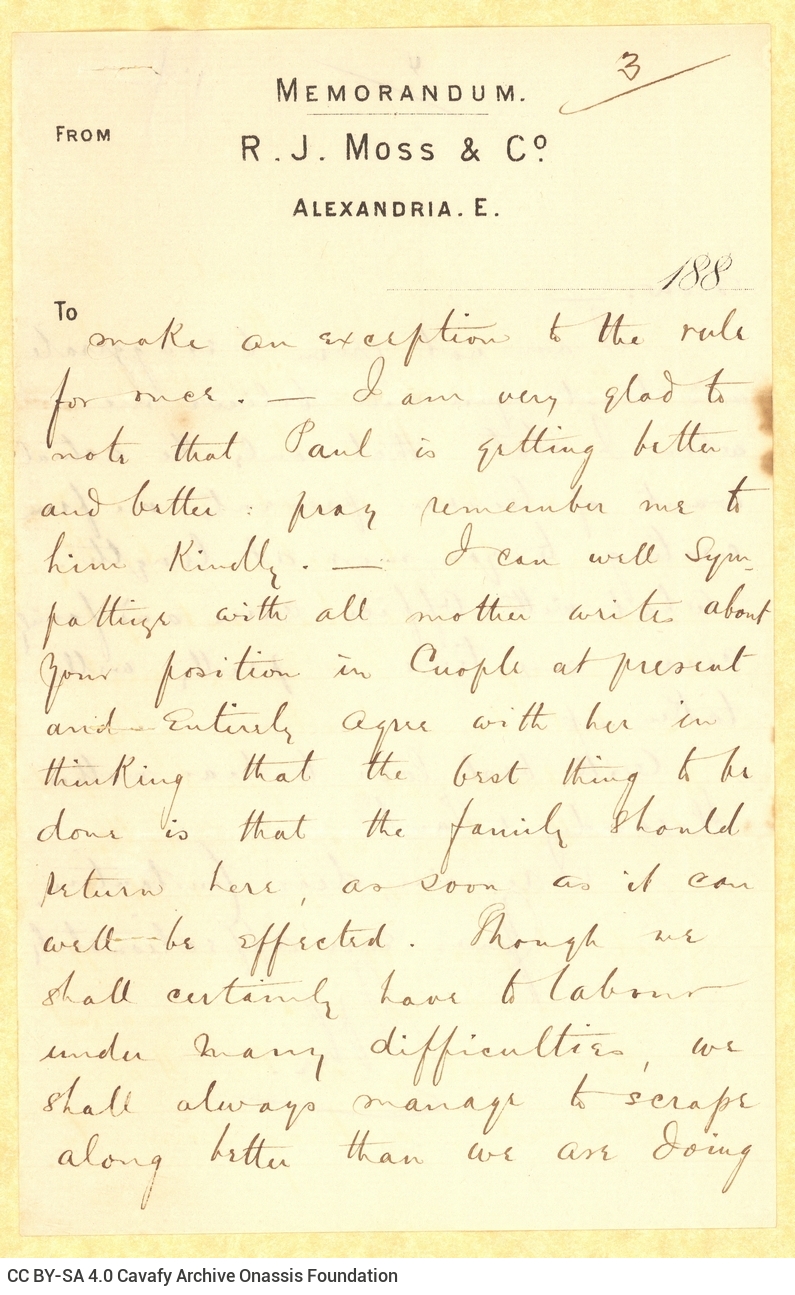 3
MEMORANDUM.
FROM
R. J. MOSS & Cº
ALEXANDRIA. E.
188
To
make an exception to the rule
for once. — I am very glad to
note that Paul is getting better
and better : pray remember me to
him Kindly. — I can well Sym-
pathize with all mother writes about
your position in Cnople at present
and Entirely agree with her in
thinking that the best thing to be
done is that the family should
return here, as soon as it can
well be effected. Though we
shall certainly have to labour
under many difficulties, we
shall always manage to scrape
along better than we are doing
CC BY-SA 4.0 Cavafy Archive Onassis Foundation